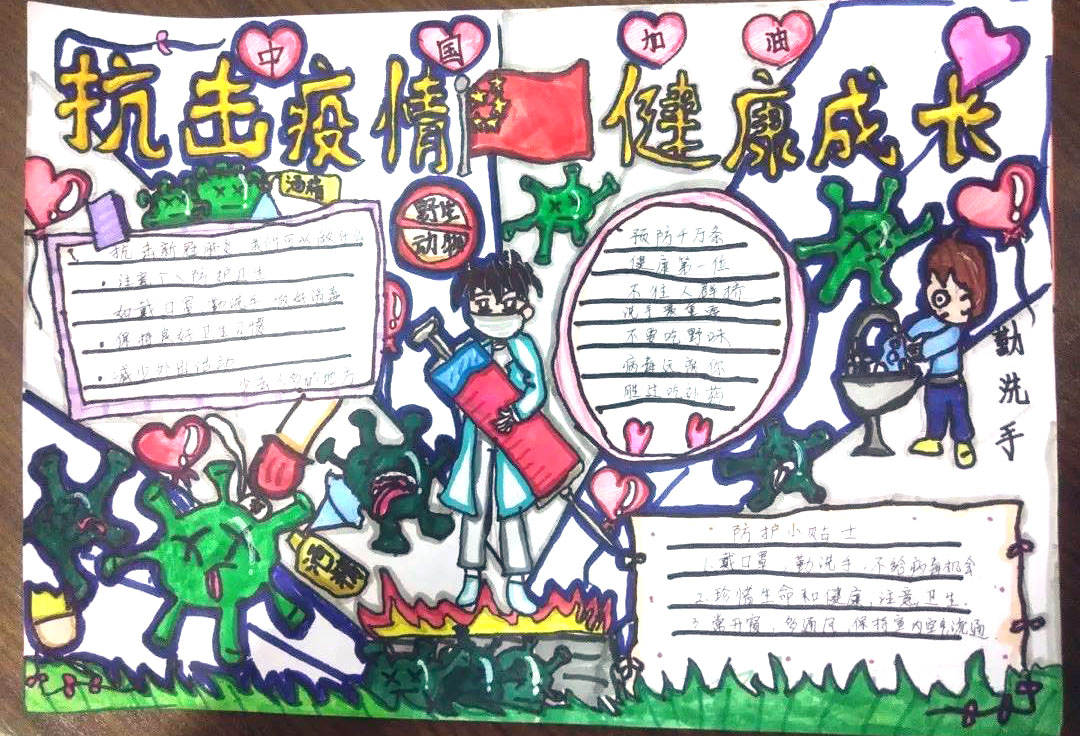 中国加油
抗击疫情 健康成长
消病
野生
动物
抗击新冠肺炎 我们可以做什么
·注意个人防护卫生
如戴口罩 勤洗手 做好消毒
·保持良好卫生习惯
·减少外出活动
少去人多的地方
预防千万条
健康第一位
不往人群挤
洗手最重要
不要吃野味
病毒远离你
胜过吃补药
勤洗手
防护小贴士
1.戴口罩,勤洗手,不给病毒机会
2.珍惜生命和健康,注意卫生.
3.常开窗,多通风,保持室内空气流通